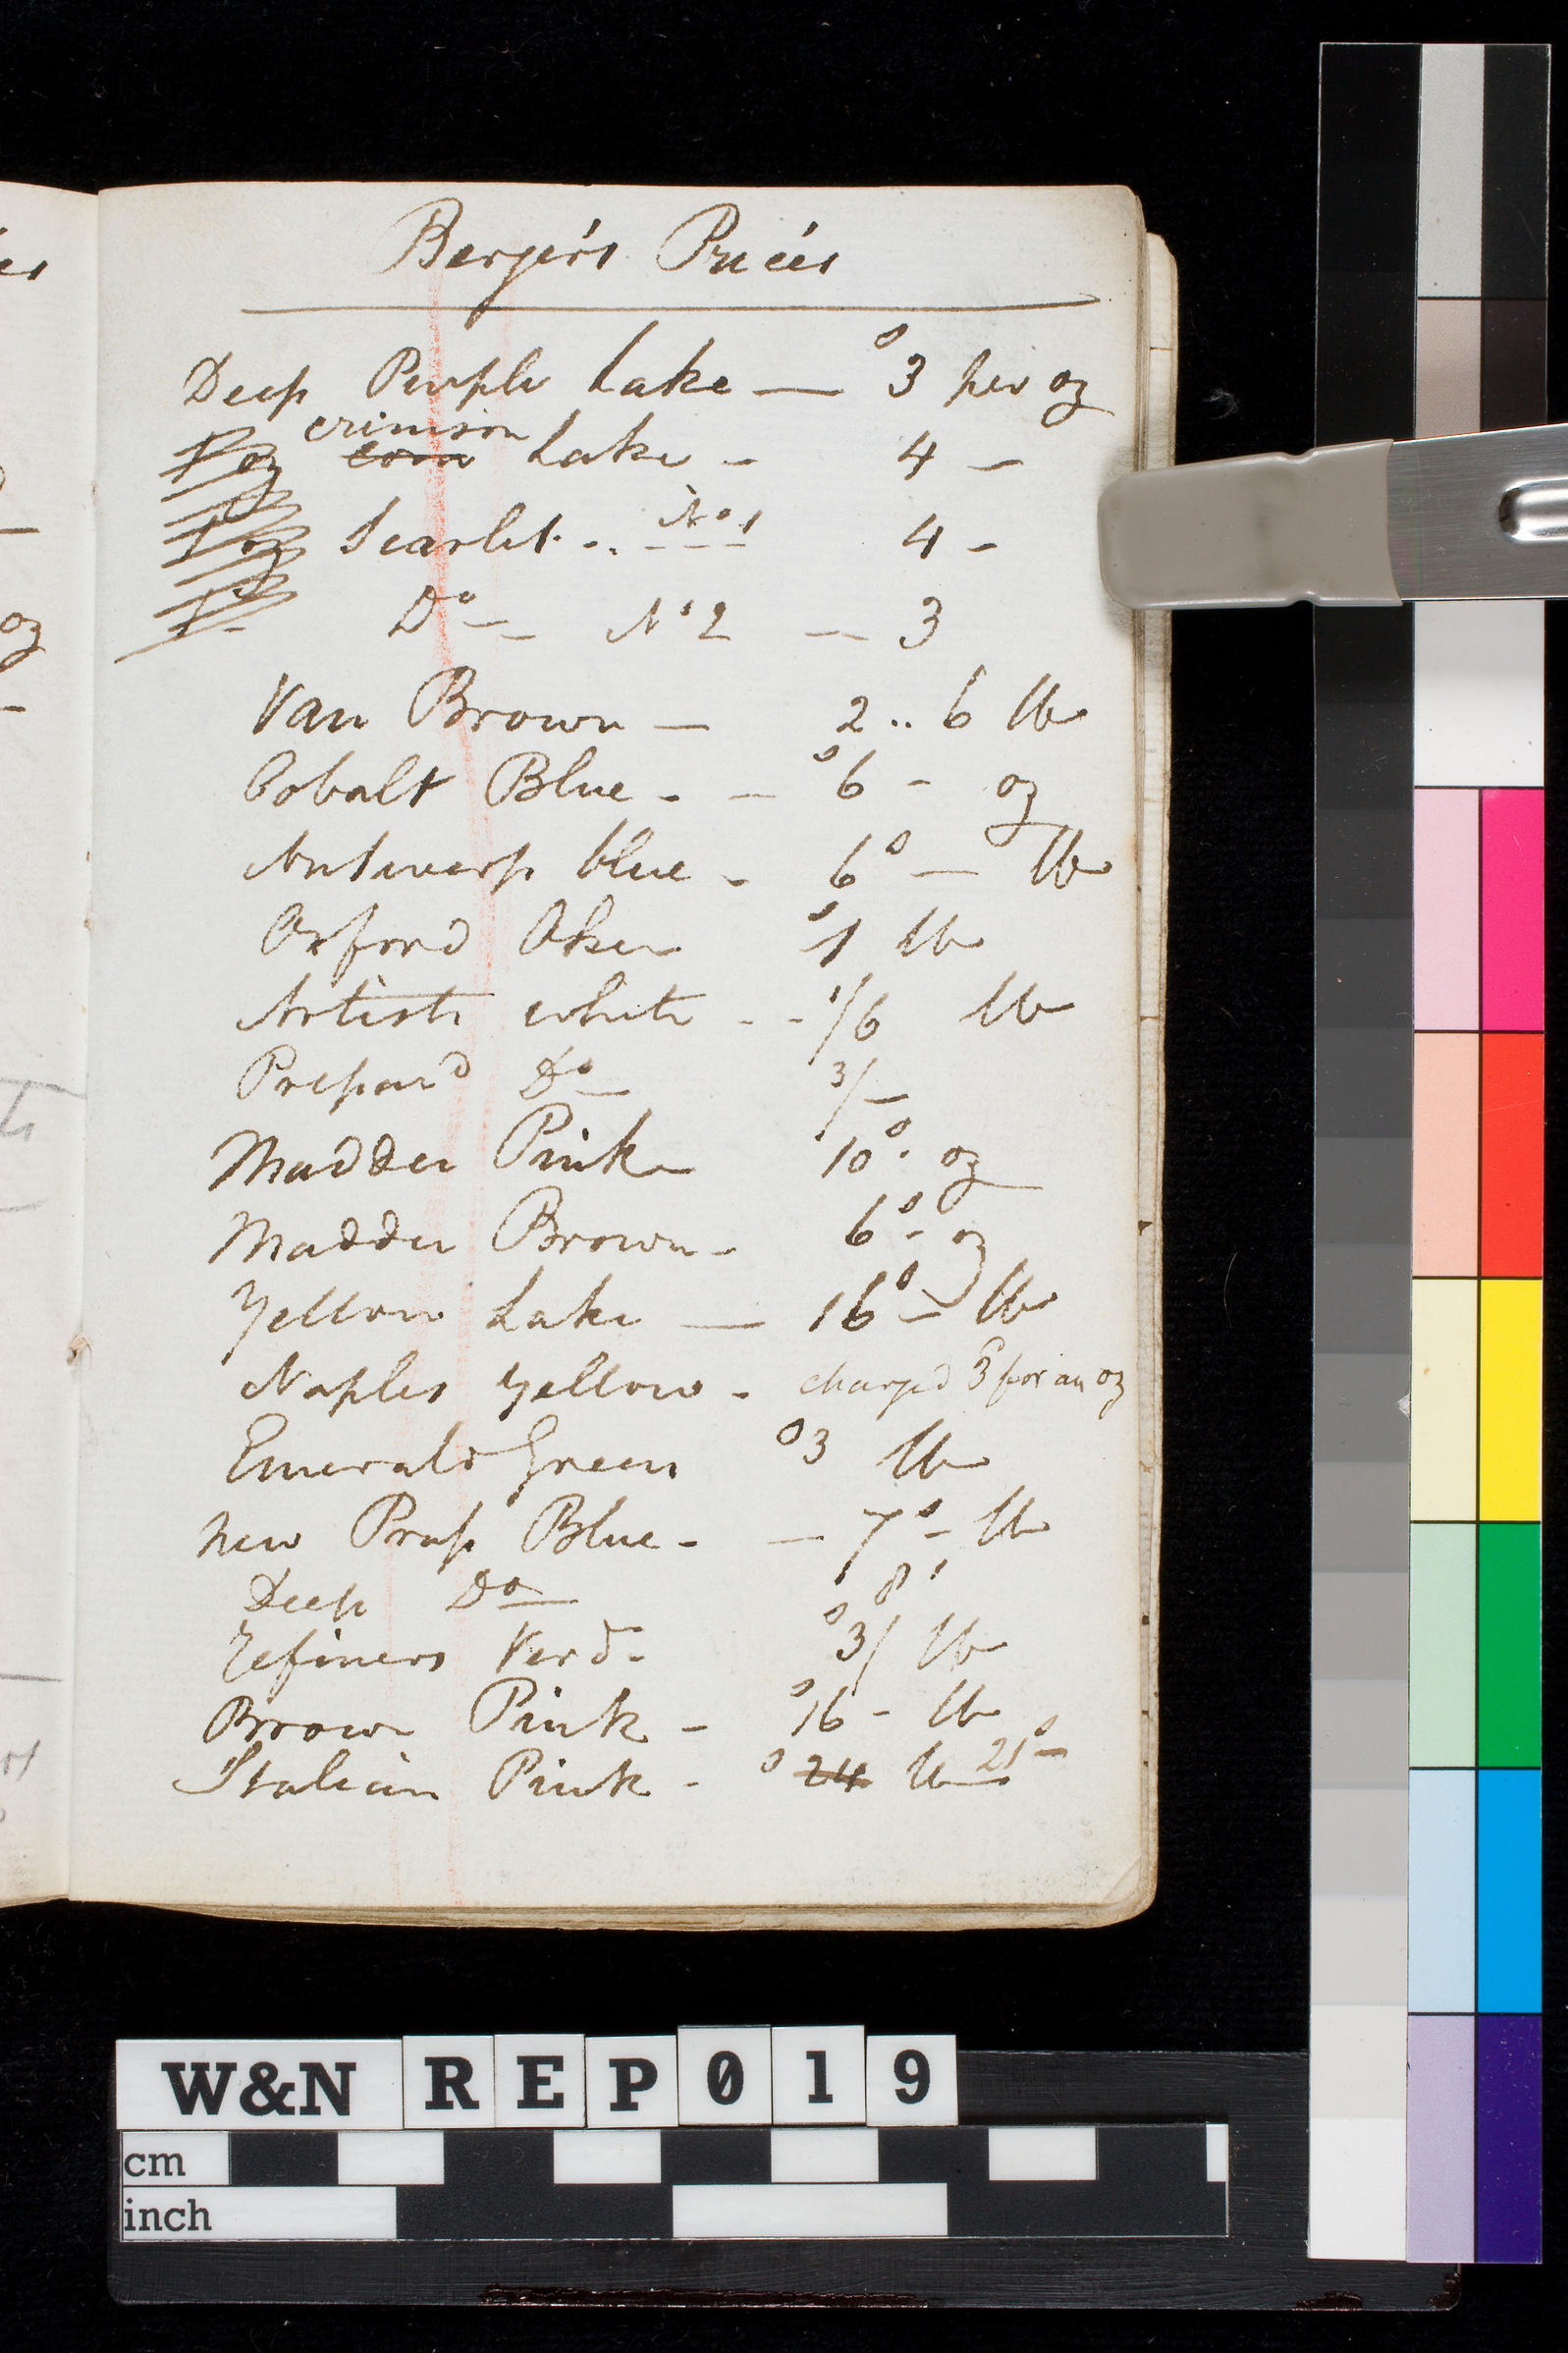 Berger's Prices
Deep Purple Lake — s 3 per oz
crimson
1 oz com Lake - 4 -
1 oz Scarlet - .. No 1 4 -
1 - Do - - No 2 - 3
Van Brown — 2 .. 6 lb
Cobalt Blue - - s 6 - oz
Antwerp blue - 6 s - lb
Oxford Oker s 1 lb
Artists white - - 1/6 lb
Prepard Do 3/-
Madder Pink 10 s. oz
Madder Brown - 6 s - oz
Yellow Lake — 16 s - lb
Naples Yellow - charged 3 s for an oz
Emerald Green s 3 lb
New Prus Blue - - 7 s - lb
Deep Do 8 '
Refiners Verd - s 3/ lb
Brown Pink - s 16 - lb
Italian Pink - s 24 lb 21 s -
oz
W&N REP019
cm
inch